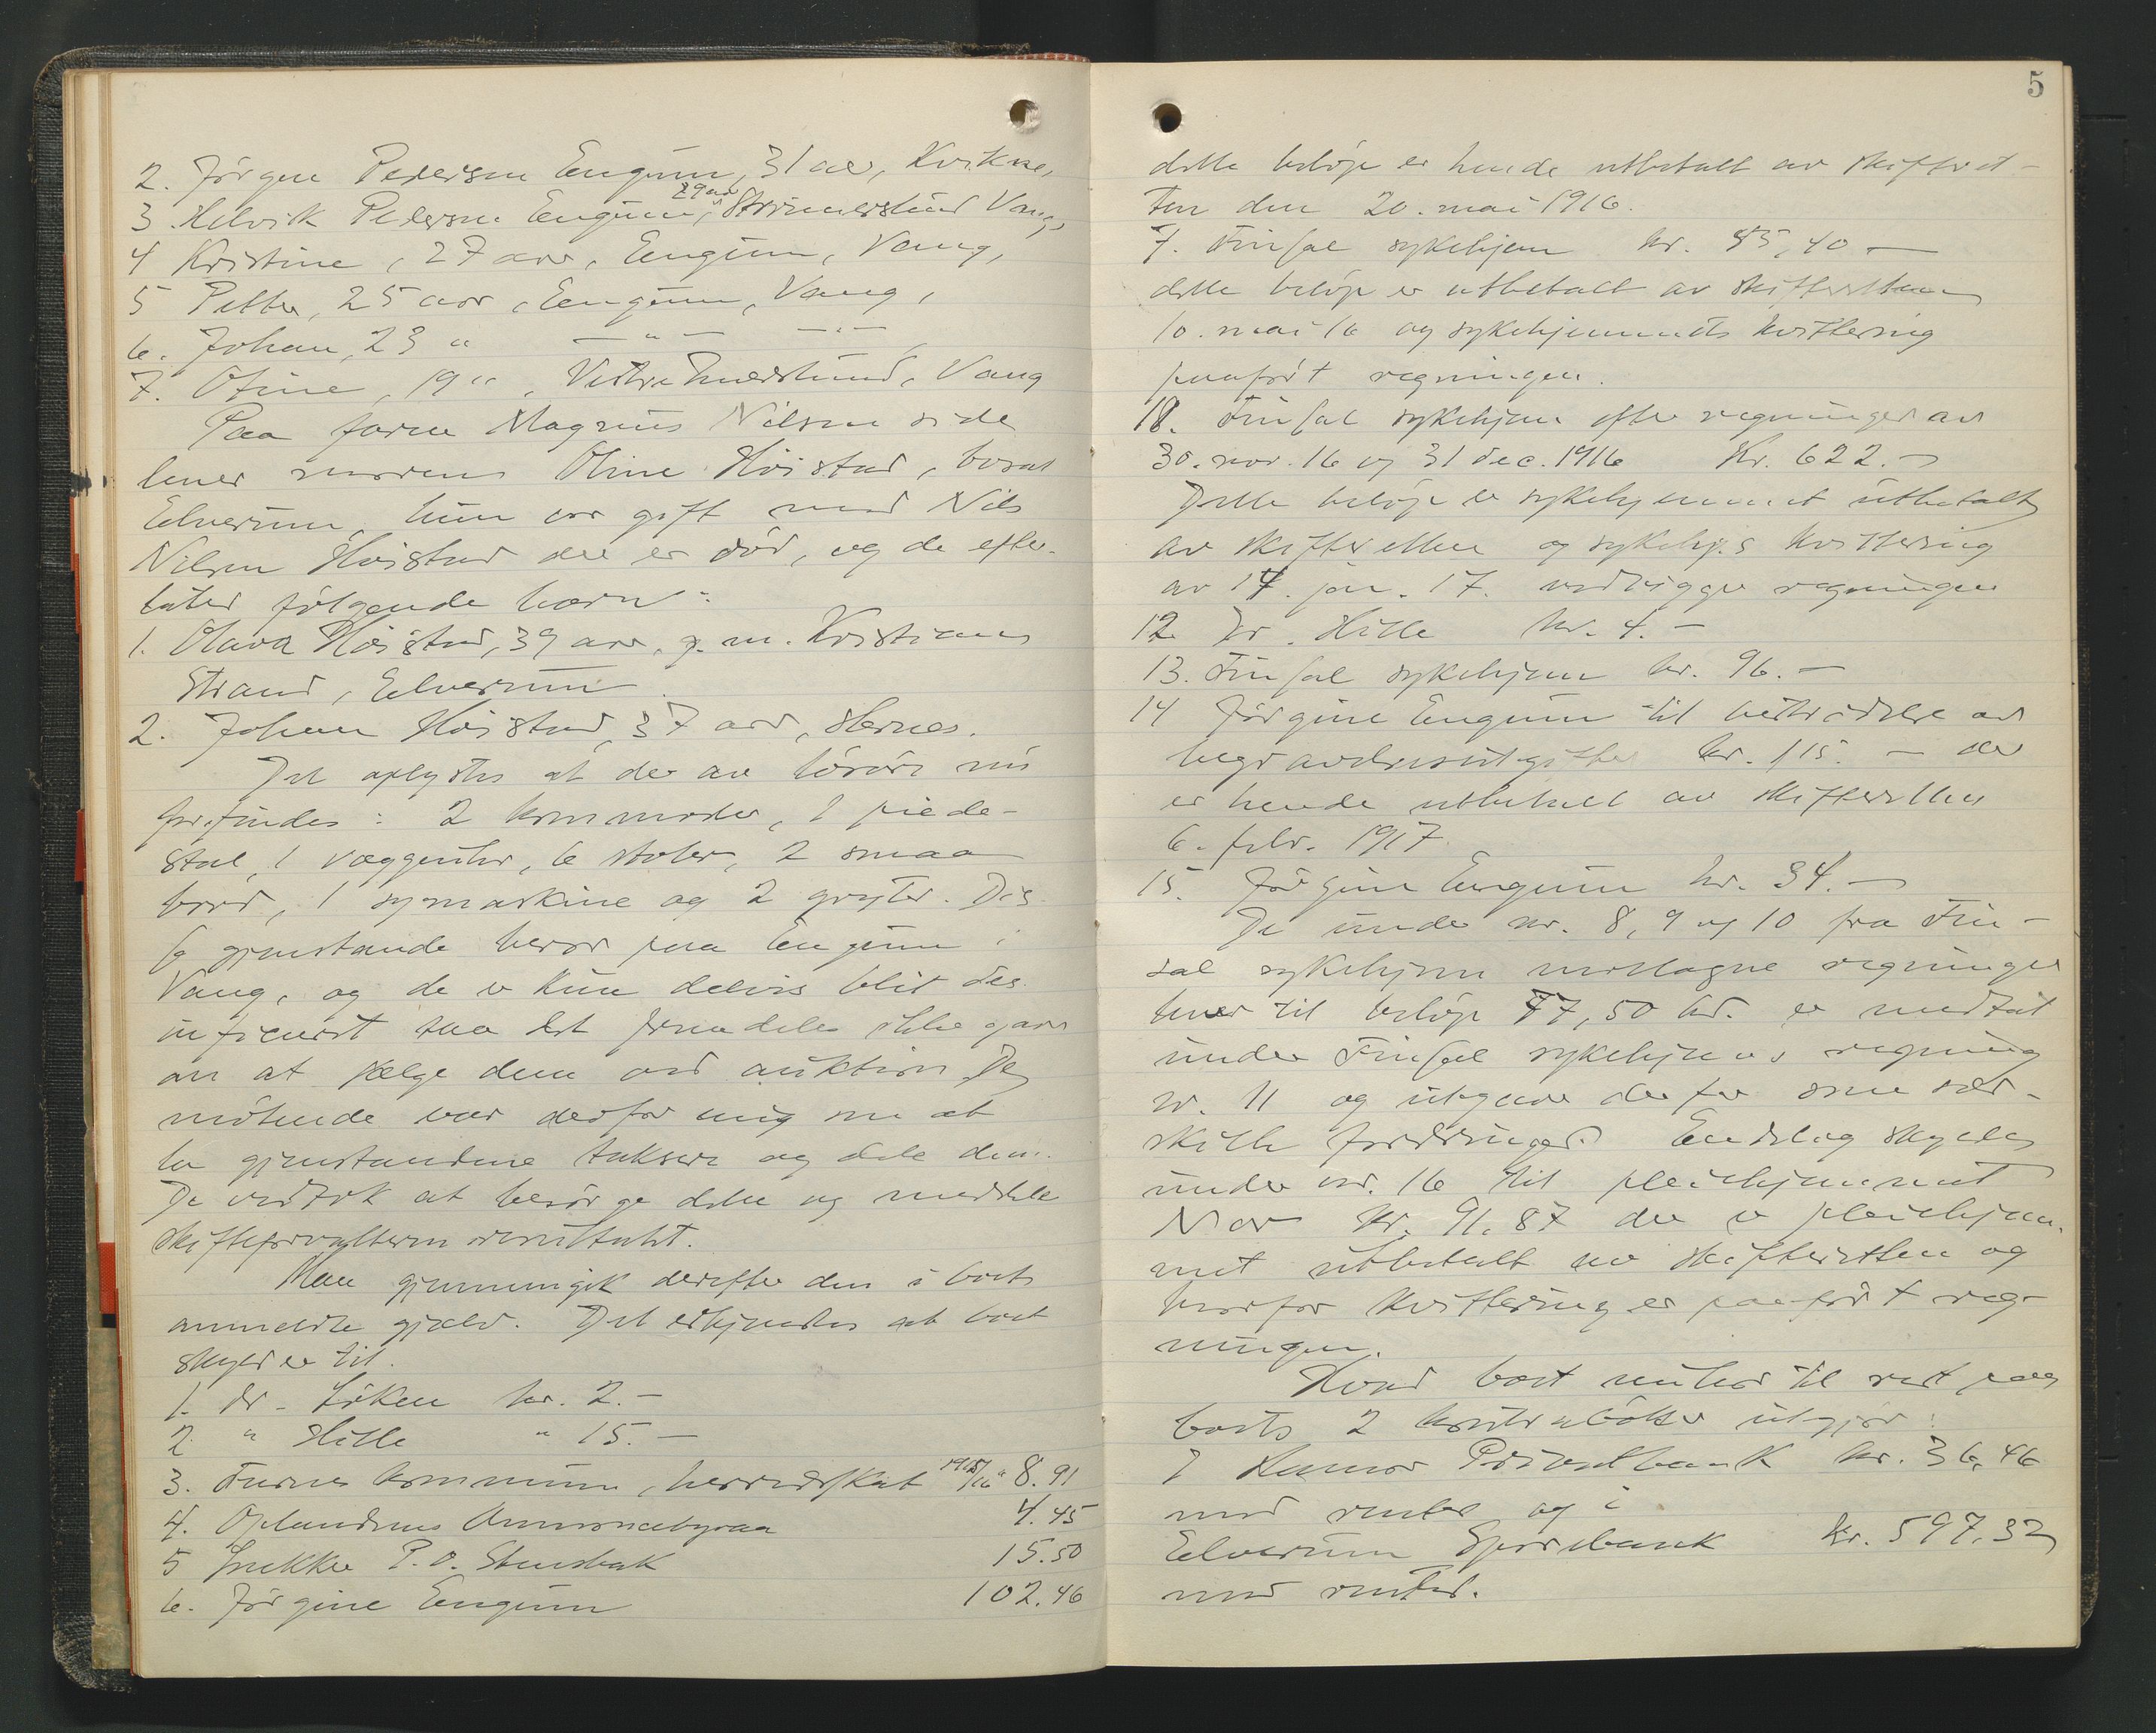 2. Jörgen Pedersen Engum, 31 aar, Kvikne,
3. Helvik Pedersen Engum, 29 aar, Vang,
4 Kristine, 27 aar, Engum, Vang,
5 Petter, 25 aar, Engum, Vang,
6. Johan, 23 " — " — — " —
7. Otine, 19 ", Vestre , Vang
Paa farens Magnus Nilsens side
lever morens Oline Höistad, bosat
Elverum, hun var gift med Nils
Nilsen Höistad der er död, og de efter-
later følgende barn:
1. Olava Höistad, 39 aar, g. m. Kristian
Strand, Elverum.
2. Johan Höistad, 37 aar, Hernes.
Det oplystes at der av lösöre nu
forefindes: 2 kommoder, 1 piede-
stal, 1 væggeuhr, 6 stoler, 2 smaa
bord, 1 symaskine og 2 gryter. Dis-
se gjenstande beror paa Engum i
Vang, og de er kun delvis blit des-
inficeret saa det fremdeles ikke gaar
an at sælge dem ved auktion. De
mötende var derfor enig om at
la gjenstandene taksere og dele dem.
De vedtok at besörge dette og meddele
skifteforvalteren resultatet.
Man gjennemgik derefter den i boet
anmeldte gjæld. Det erkjendtes at boet
skylder til.
1. dr. Löken kr. 2.—
2 " Hille " 15.—
3. Furnes kommune, herredskat 1915/16 " 8.91
4. Oplandenes Annoncebyraa 4.45
5 Snekker P. O. Stensbak 15.50
6. Jörgine Engum 102.46
5
dette belöp er hende utbetalt av skifteret-
ten den 20. mai 1916.
7. Finsal sykehjem kr. 55,40 —
dette belöp er utbetalt av skifteretten
10. mai 16 og sykehjemmets kvittering
paaført regningen.
18. Finsal sykehjem efter regninger av
30. nov. 16 og 31 dec. 1916 Kr. 622.—
Dette belöp er sykehjemmet utbetalt
av skifteretten og sykehj.s kvittering
av 17. jan. 17. vedligger regningen
12 Dr. Hille kr. 4.—
13. Finsal sykehjem kr. 96.—
14 Jörgine Engum til bestridelse av
begravelsesutgifter kr. 115.— der
er hende utbetalt av skifteretten
6. febr. 1917.
15. Jörgine Engum kr. 34.—
De under nr. 8, 9 og 10 fra Fin-
sal sykehjem mottagne regninger
hver til belöp 77,50 kr. er medtat
under Finsal sykehjems regning
nr. 11 og utgaar derfor som sær-
skilte fordringer. Endelig skyldes
under nr. 16 til pleiehjemmet
Nor kr. 91.87 der er pleiehjem-
met utbetalt av skifteretten og
hvorfor kvittering er paaført reg-
ningen.
Hvad boet nu har til rest paa
boets 2 kontrabøker utgjör:
I Hamar Privatbank kr. 36,46
med renter og i
Elverum Sparebank kr. 597.32
med renter.